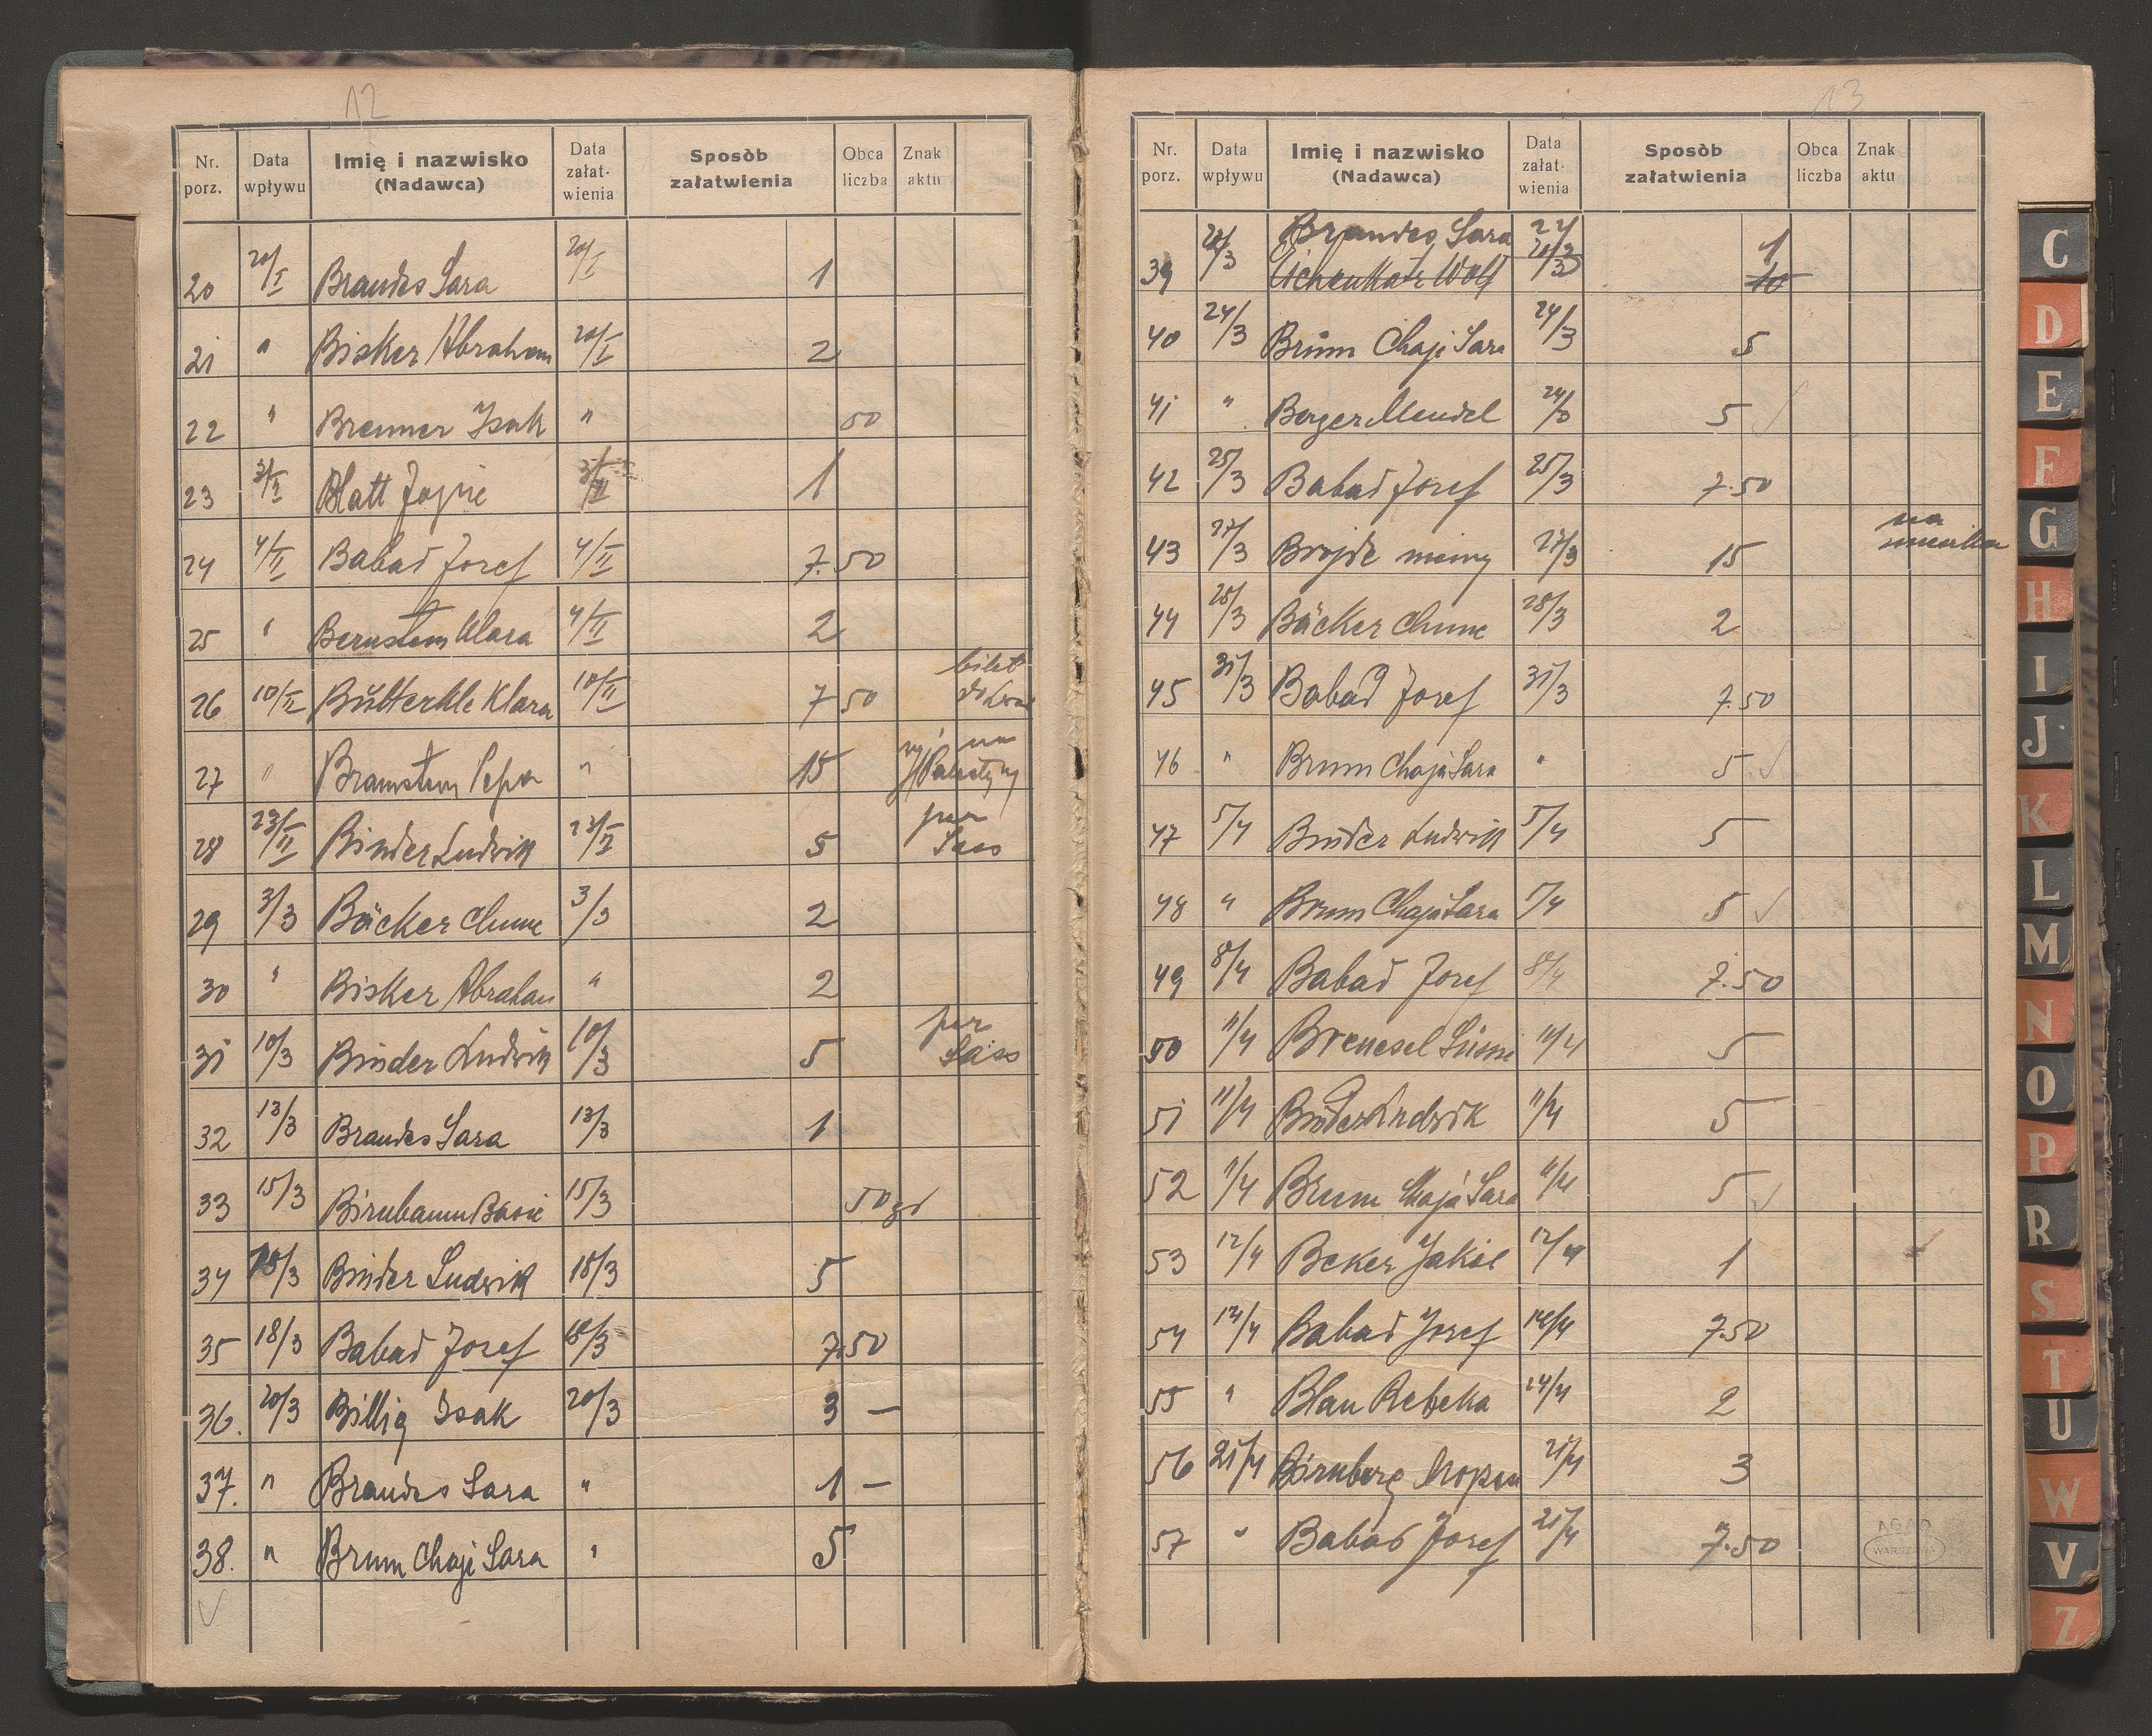 12
Nr. porz. Data wpływu Imię i nazwisko (Nadawca) Data załat- wienia Sposòb załatwienia Obca liczba Znak aktu
20 20/I Brandes Sara 20/I 1
21 " Bisker Abraham 20/I 2
22 " Brenner Isak " 50
23 3/II Blatt 3/II 1
24 4/II Babad Josef 4/II 7.50
25 " Bernstein Klara 4/II 2
26 10/II Klara 10/II 7 50 bilet do
27 " Pepa " 15 na Palestyny
28 23/II Binder Ludwik 23/II 5 per Sass
29 3/3 Bäcker Chune 3/3 2
30 " Bisker Abraham " 2
31 10/3 Binder Ludwik 10/3 5 per Sass
32 13/3 Brandes Sara 13/3 1
33 15/3 Birnbaum 15/3 50 gr
34 18/3 Binder Ludwik 18/3 5
35 18/3 Babad Josef 18/3 7.50
36. 20/3 Billig Isak 20/3 3 —
37. " Brandes Sara " 1 —
38. " Brum Chaje Sara " 5
13
Nr. porz. Data wpływu Imię i nazwisko (Nadawca) Data załat- wienia Sposòb załatwienia Obca liczba Znak aktu
Brandes Sara 1
39 Wolf 10
40 24/3 Brum Chaje Sara 24/3 5
41 " Berger Mendel 5
42 25/3 Babad Josef 25/3 7.50
43 27/3 27/3 15 na
44 28/3 Bäcker Chune 28/3 2
45 31/3 Babad Josef 31/3 7.50
46 " Brum Chaja Sara " 5
47 5/4 Binder Ludwik 5/4 5
48 " Brum Chaja Sara 5/4 5
49 8/4 Babad Josef 8/4 7.50
50 11/4 11/4 5
51 11/4 Binder Ludwik 11/4 5
52 11/4 Brum Chaja Sara 11/4 5
53 12/4 Beker 12/4 1
54 14/4 Babad Josef 14/4 7.50
55 " Blau Rebeka 14/4 2
56 21/4 Birnberg 21/4 3
57 " Babad Josef 21/4 7.50
AGAD
WARSZAWA
C
D
E
F
G
H
I
J
K
L
M
N
O
P
R
S
T
U
W
V
Z